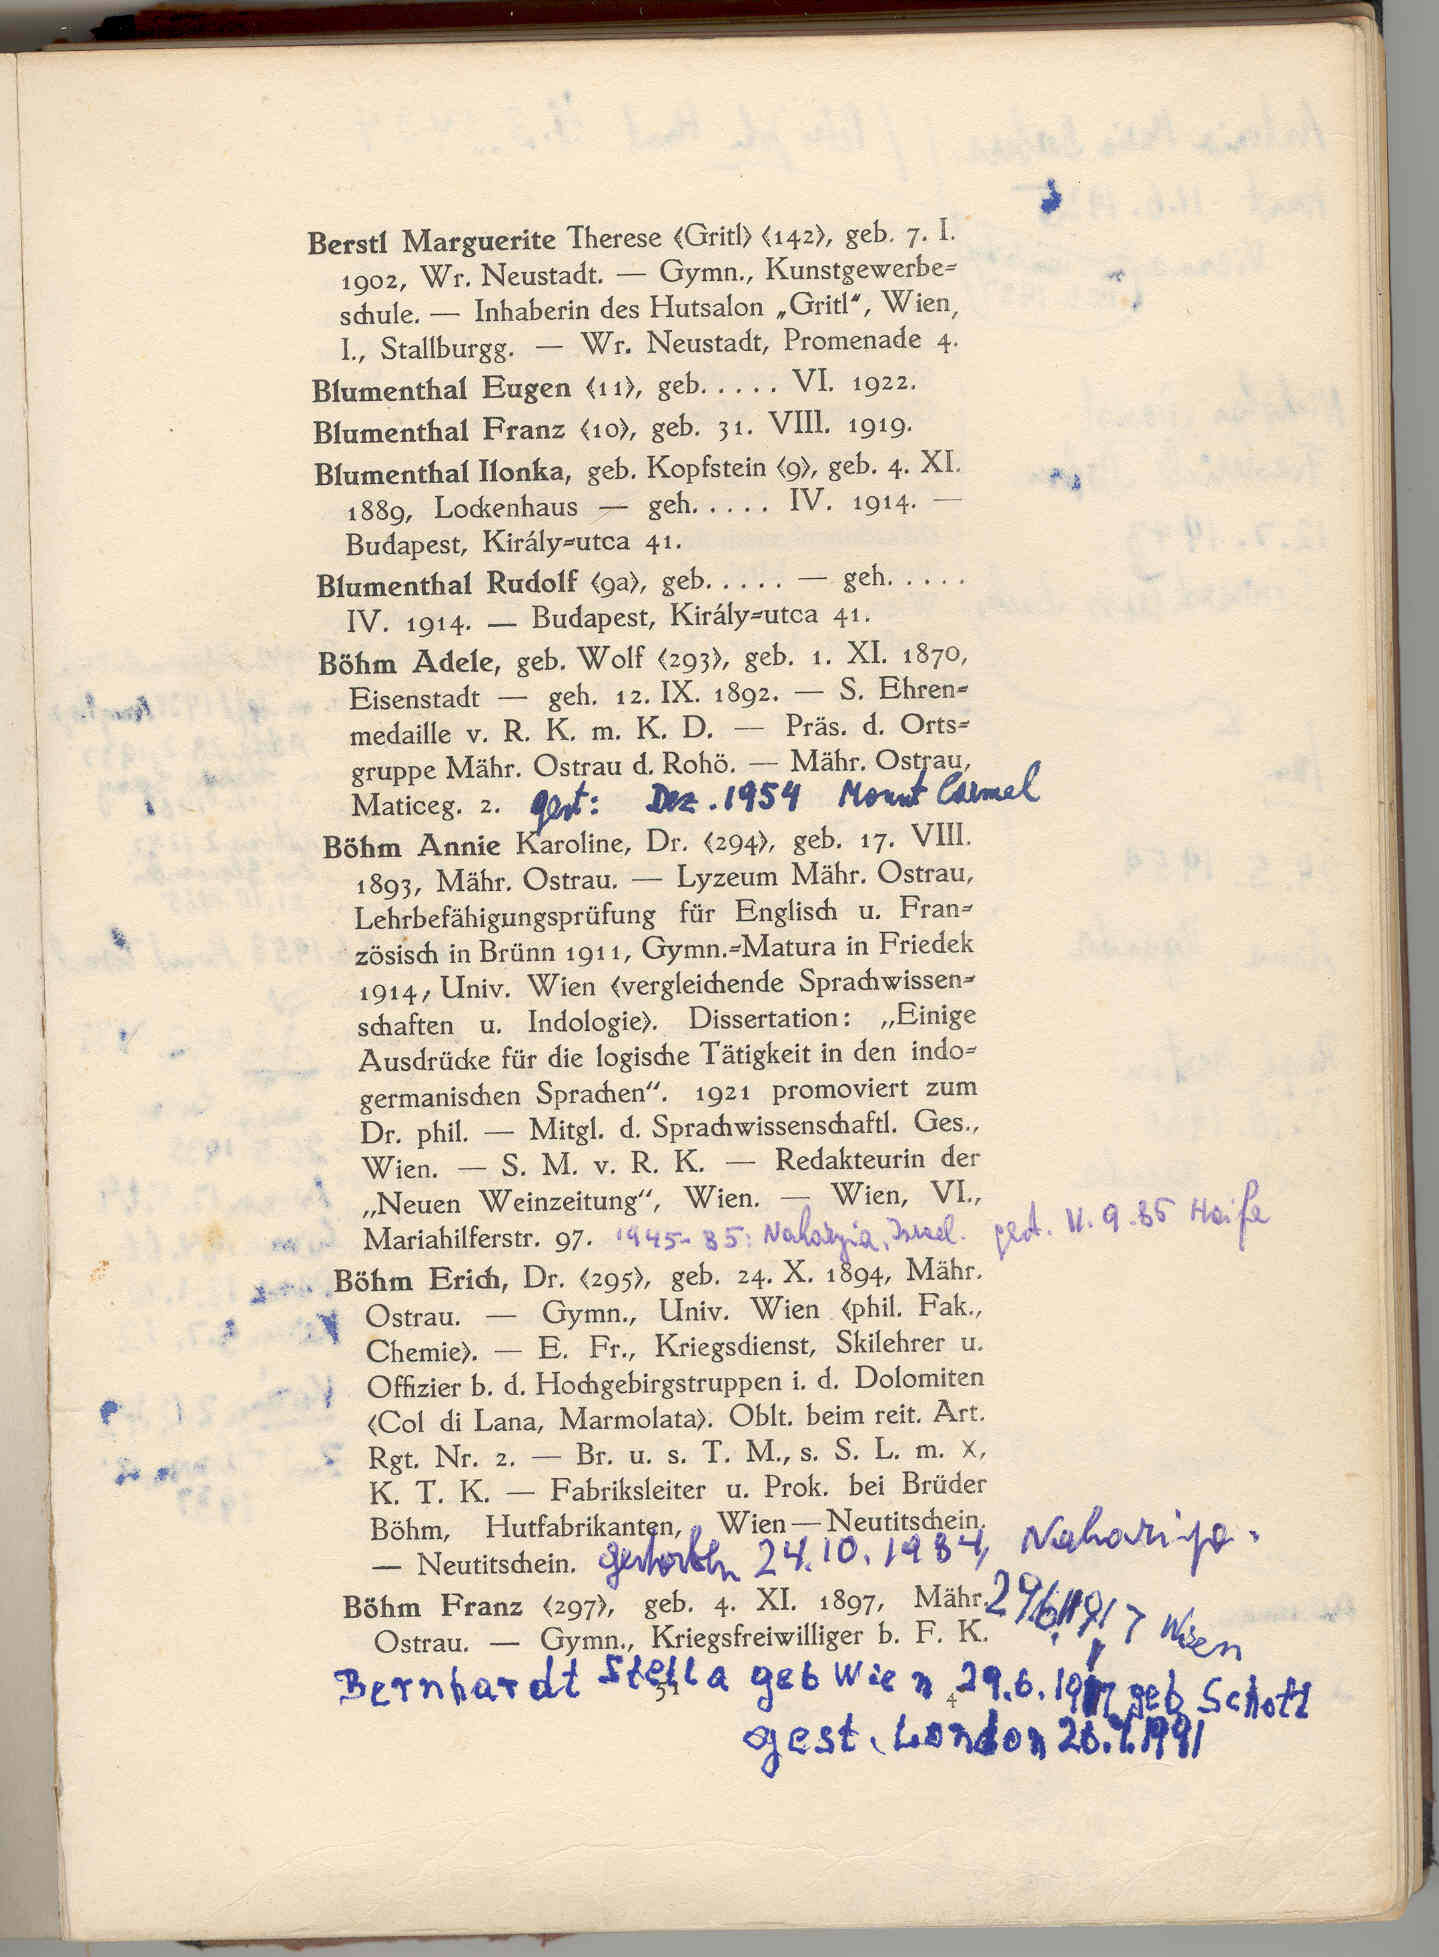 Berstl Marguerite Therese ‹Gritl› ‹142›, geb. 7. I.
1902, Wr. Neustadt. — Gymn., Kunstgewerbe=
schule. — Inhaberin des Hutsalon „Gritl“, Wien,
I., Stallburgg. — Wr. Neustadt, Promenade 4.
Blumenthal Eugen ‹11›, geb. . . . . VI. 1922.
Blumenthal Franz ‹10›, geb. 31. VIII. 1919.
Blumenthal Ilonka, geb. Kopfstein ‹9›, geb. 4. XI.
1889, Lockenhaus — geh. . . . . IV. 1914. —
Budapest, Király=utca 41.
Blumenthal Rudolf ‹9a›, geb. . . . . — geh. . . . .
IV. 1914. — Budapest, Király=utca 41.
Böhm Adele, geb. Wolf ‹293›, geb. 1. XI. 1870,
Eisenstadt — geh. 12. IX. 1892. — S. Ehren=
medaille v. R. K. m. K. D. — Präs. d. Orts=
gruppe Mähr. Ostrau d. Rohö. — Mähr. Ostrau,
Maticeg. 2. gest: Dez. 1954 Mount Carmel
Böhm Annie Karoline, Dr. ‹294›, geb. 17. VIII.
1893, Mähr. Ostrau. — Lyzeum Mähr. Ostrau,
Lehrbefähigungsprüfung für Englisch u. Fran=
zösisch in Brünn 1911, Gymn.=Matura in Friedek
1914, Univ. Wien ‹vergleichende Sprachwissen=
schaften u. Indologie›. Dissertation: „Einige
Ausdrücke für die logische Tätigkeit in den indo=
germanischen Sprachen“. 1921 promoviert zum
Dr. phil. — Mitgl. d. Sprachwissenschaftl. Ges.,
Wien. — S. M. v. R. K. — Redakteurin der
„Neuen Weinzeitung“, Wien. — Wien, VI.,
Mariahilferstr. 97. 1945-85: Naharyia, Israel. gest. 11.9.85 Haifa
Böhm Erich, Dr. ‹295›, geb. 24. X. 1894, Mähr.
Ostrau. — Gymn., Univ. Wien ‹phil. Fak.,
Chemie›. — E. Fr., Kriegsdienst, Skilehrer u.
Offizier b. d. Hochgebirgstruppen i. d. Dolomiten
‹Col di Lana, Marmolata›. Oblt. beim reit. Art.
Rgt. Nr. 2. — Br. u. s. T. M., s. S. L. m. X,
K. T. K. — Fabriksleiter u. Prok. bei Brüder
Böhm, Hutfabrikanten, Wien—Neutitschein.
— Neutitschein. gestorben 24.10.1984, Nahariya.
Böhm Franz ‹297›, geb. 4. XI. 1897, Mähr. 29.6.1917 Wien
Ostrau. — Gymn., Kriegsfreiwilliger b. F. K.
Bernhardt Stella geb Wien 29.6.1917 geb Schott
51 4
gest. London 1991